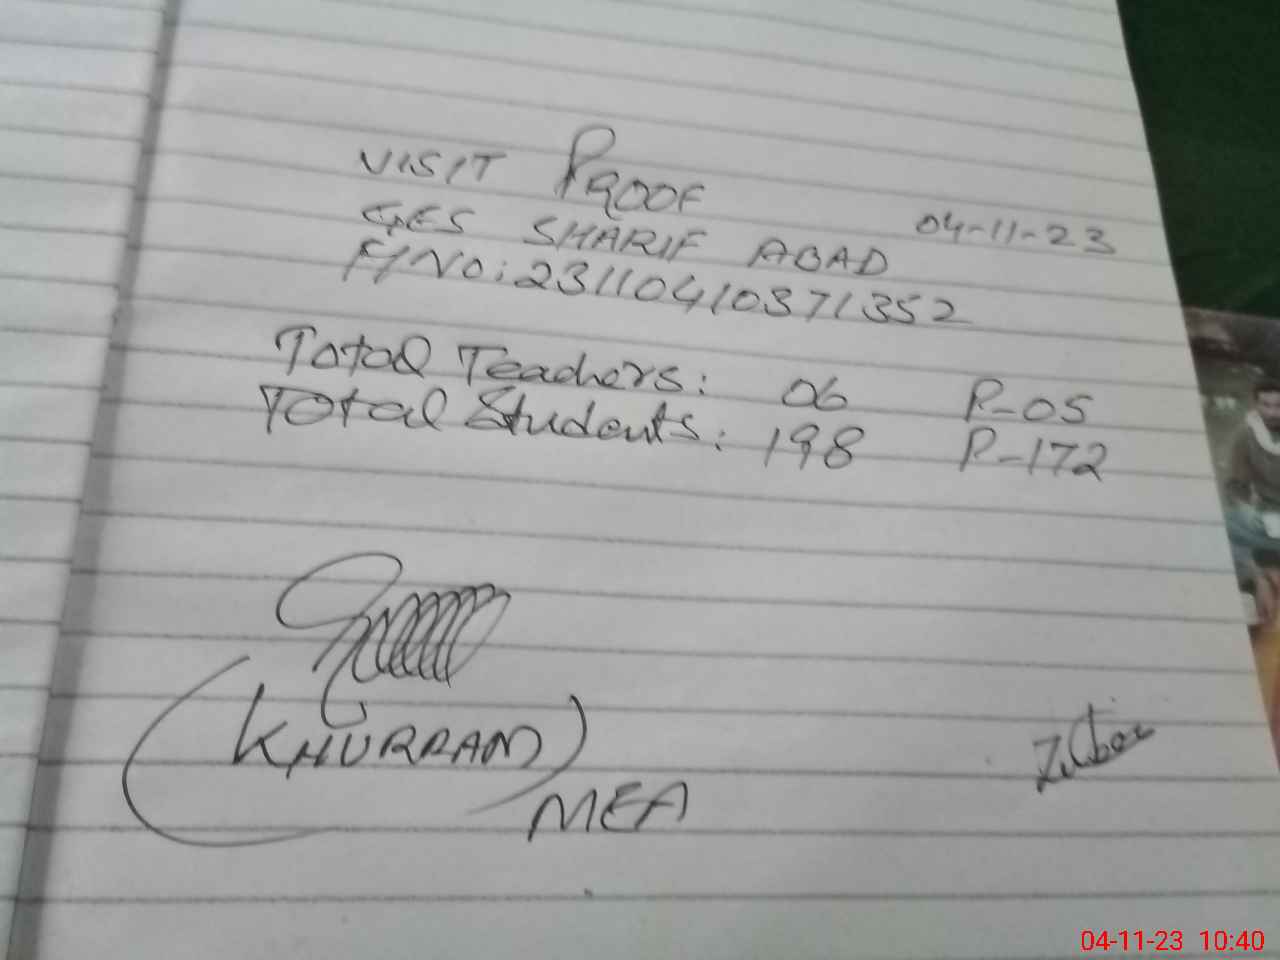 VISIT PROOF
GES SHARIF ABAD 04-11-23
F/No: 23110410371352
Total Teachers: 06 P-05
Total Students: 198 P-172
(KHURRAM)
MEA
04-11-23 10:40